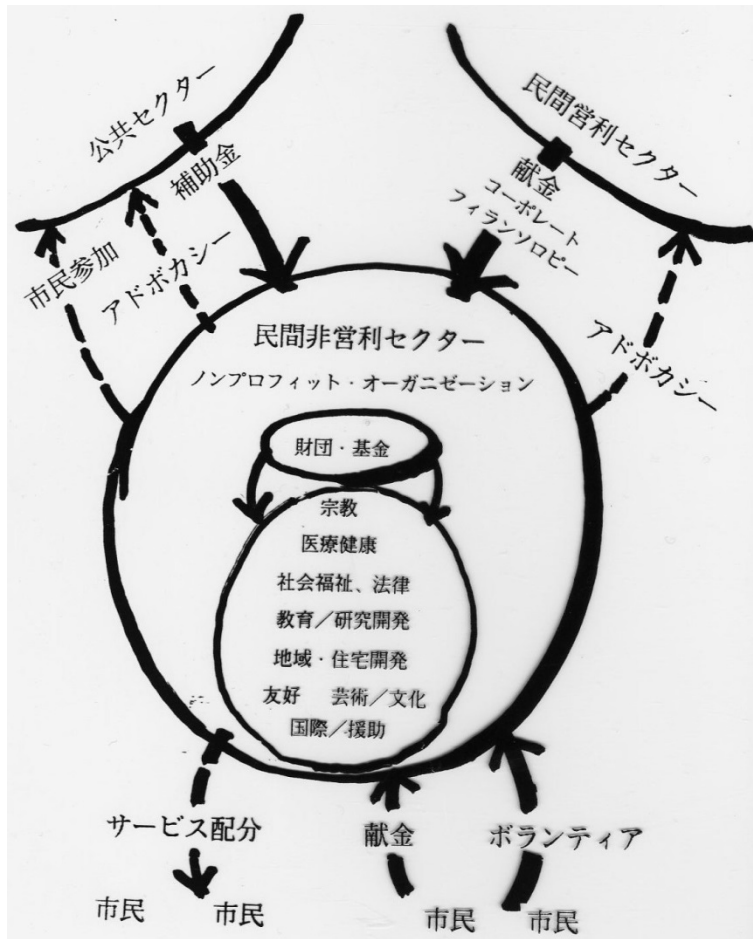 公共セクター
民間営利セクター
補助金
献金
コーポレート
フィランソロピー
市民参加
アドボカシー
アドボカシー
民間非営利セクター
ノンプロフィット・オーガニゼーション
財団・基金
宗教
医療健康
社会福祉、法律
教育／研究開発
地域・住宅開発
友好　芸術／文化
国際／援助
サービス配分
献金
ボランティア
市民
市民
市民
市民